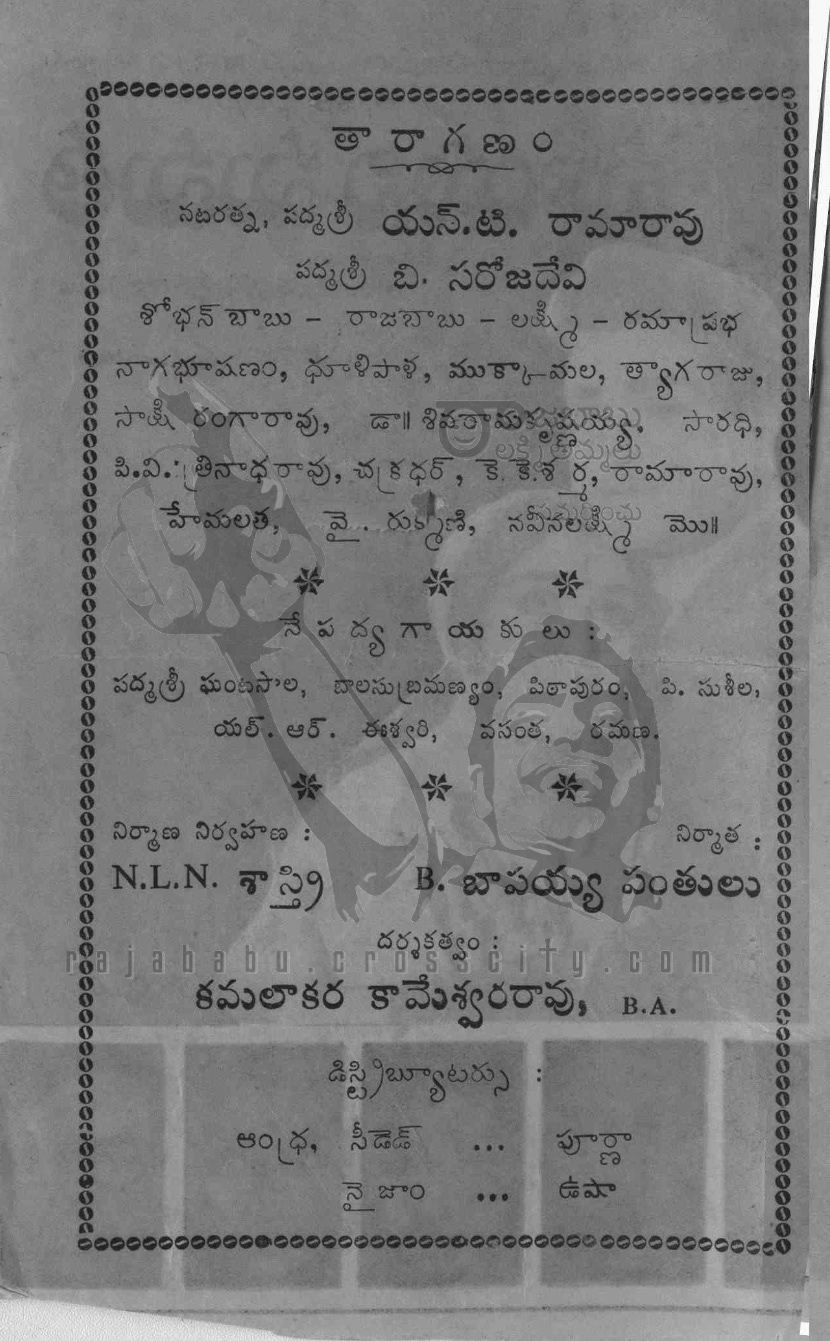 తారాగణం
నటరత్న, పద్మశ్రీ యన్.టి. రామారావు
పద్మశ్రీ బి. సరోజదేవి
శోభన్ బాబు – రాజబాబు – లక్ష్మి – రమాప్రభ
నాగభూషణం, ధూళిపాళ, ముక్కామల, త్యాగరాజు,
సాక్షి రంగారావు, డా॥ శివరామకృష్ణయ్య, సారధి,
పి.వి. త్రినాధరావు, చక్రధర్, కె. కె. శర్మ, రామారావు,
హేమలత, వై. రుక్మిణి, నవీనలక్ష్మి మొ॥
నేపద్యగాయకులు :
పద్మశ్రీ ఘంటసాల, బాలసుబ్రమణ్యం, పిఠాపురం, పి. సుశీల,
యల్. ఆర్. ఈశ్వరి, వసంత, రమణ.
నిర్మాణ నిర్వహణ : నిర్మాత :
N.L.N. శాస్త్రి B. బాపయ్య పంతులు
దర్శకత్వం :
rajababu.crosscity.com
కమలాకర కామేశ్వరరావు, B.A.
డిస్ట్రిబ్యూటర్సు :
ఆంధ్ర, సీడెడ్ ... పూర్ణా
నైజాం ... ఉషా